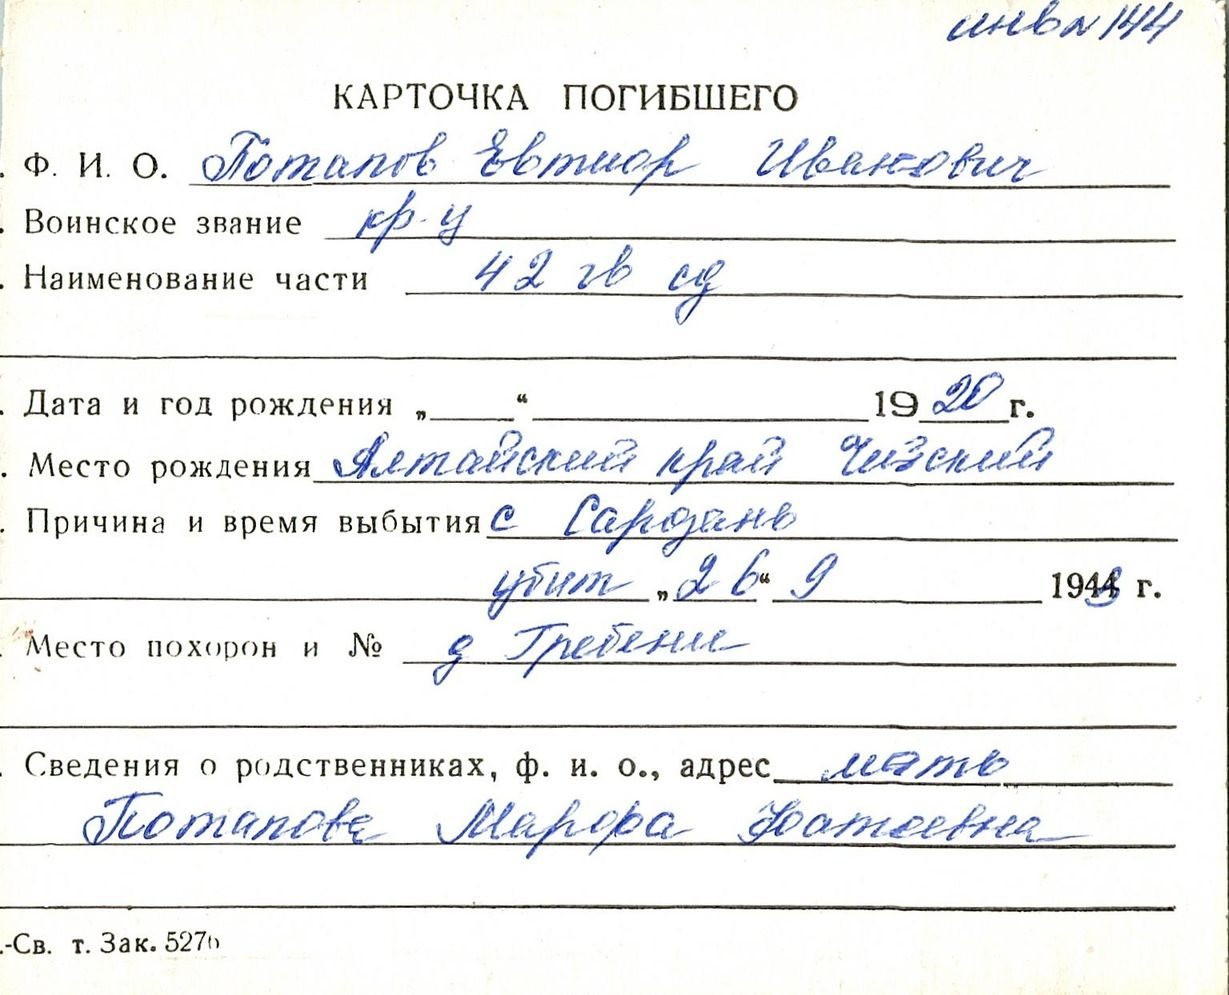 инв № 144
КАРТОЧКА ПОГИБШЕГО
. Ф. И. О. Потапов Евтиор Иванович
. Воинское звание кр-ц
. Наименование части 42 гв сд
. Дата и год рождения „ “ 1920 г.
. Место рождения Алтайский край Чизский
. Причина и время выбытия с Сардань
убит „26“ 9 1943 г.
. Место похорон и № д Гребени
. Сведения о родственниках, ф. и. о., адрес мать
Потапова
.-Св. т. Зак. 527